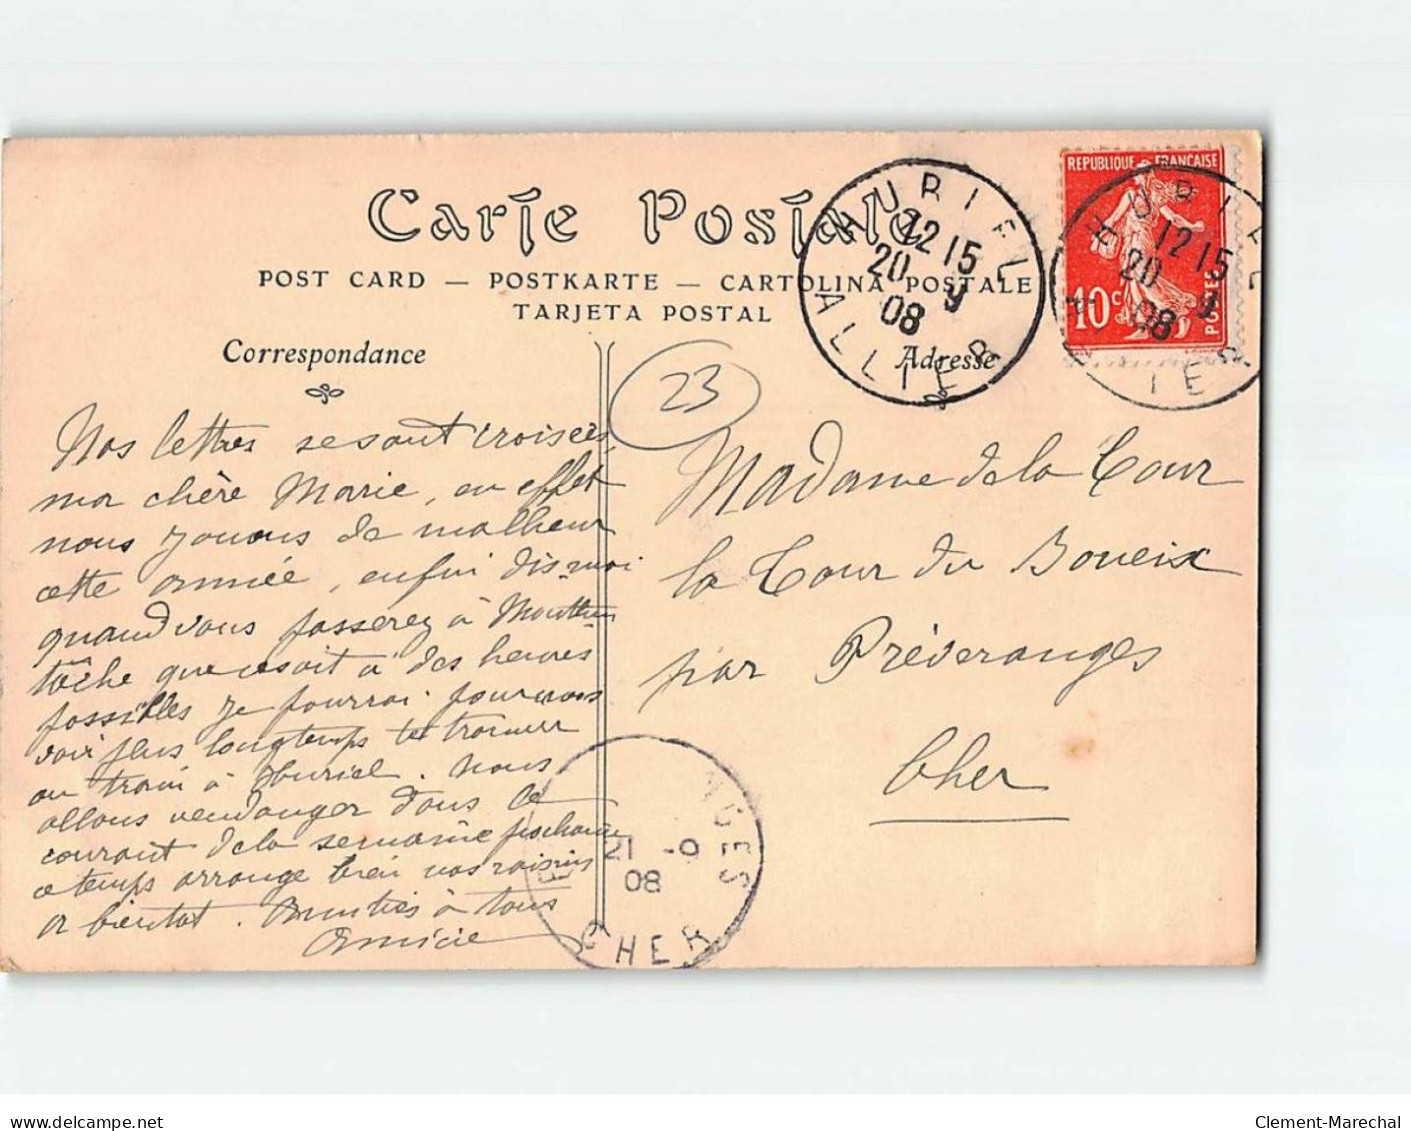 Carte Postale
POST CARD — POSTKARTE — CARTOLINA POSTALE
TARJETA POSTAL
Correspondance
Adresse
HURIEL
12 15
20 9
08
ALLIER
REPUBLIQUE FRANÇAISE
10c
POSTES
HURIEL
12 15
20 9
08
ALLIER
23
Nos lettres se sont croisées,
ma chère Marie, en effet
nous jouons de malheur
cette année, enfin dis-moi
quand vous passerez à
tâche que ce soit à des heures
possibles je pourrai pour vous
voir plus longtemps te trouver
au train à Huriel. Nous
allons vendanger dans le
courant de la semaine prochaine
ce temps arrange bien nos raisins
à bientôt. Amitiés à tous
Amicie
Madame de la Cour
la Cour du Boueix
par Préveranges
Cher
21 -9
08
CHER
delcampe.net
Clement-Marechal